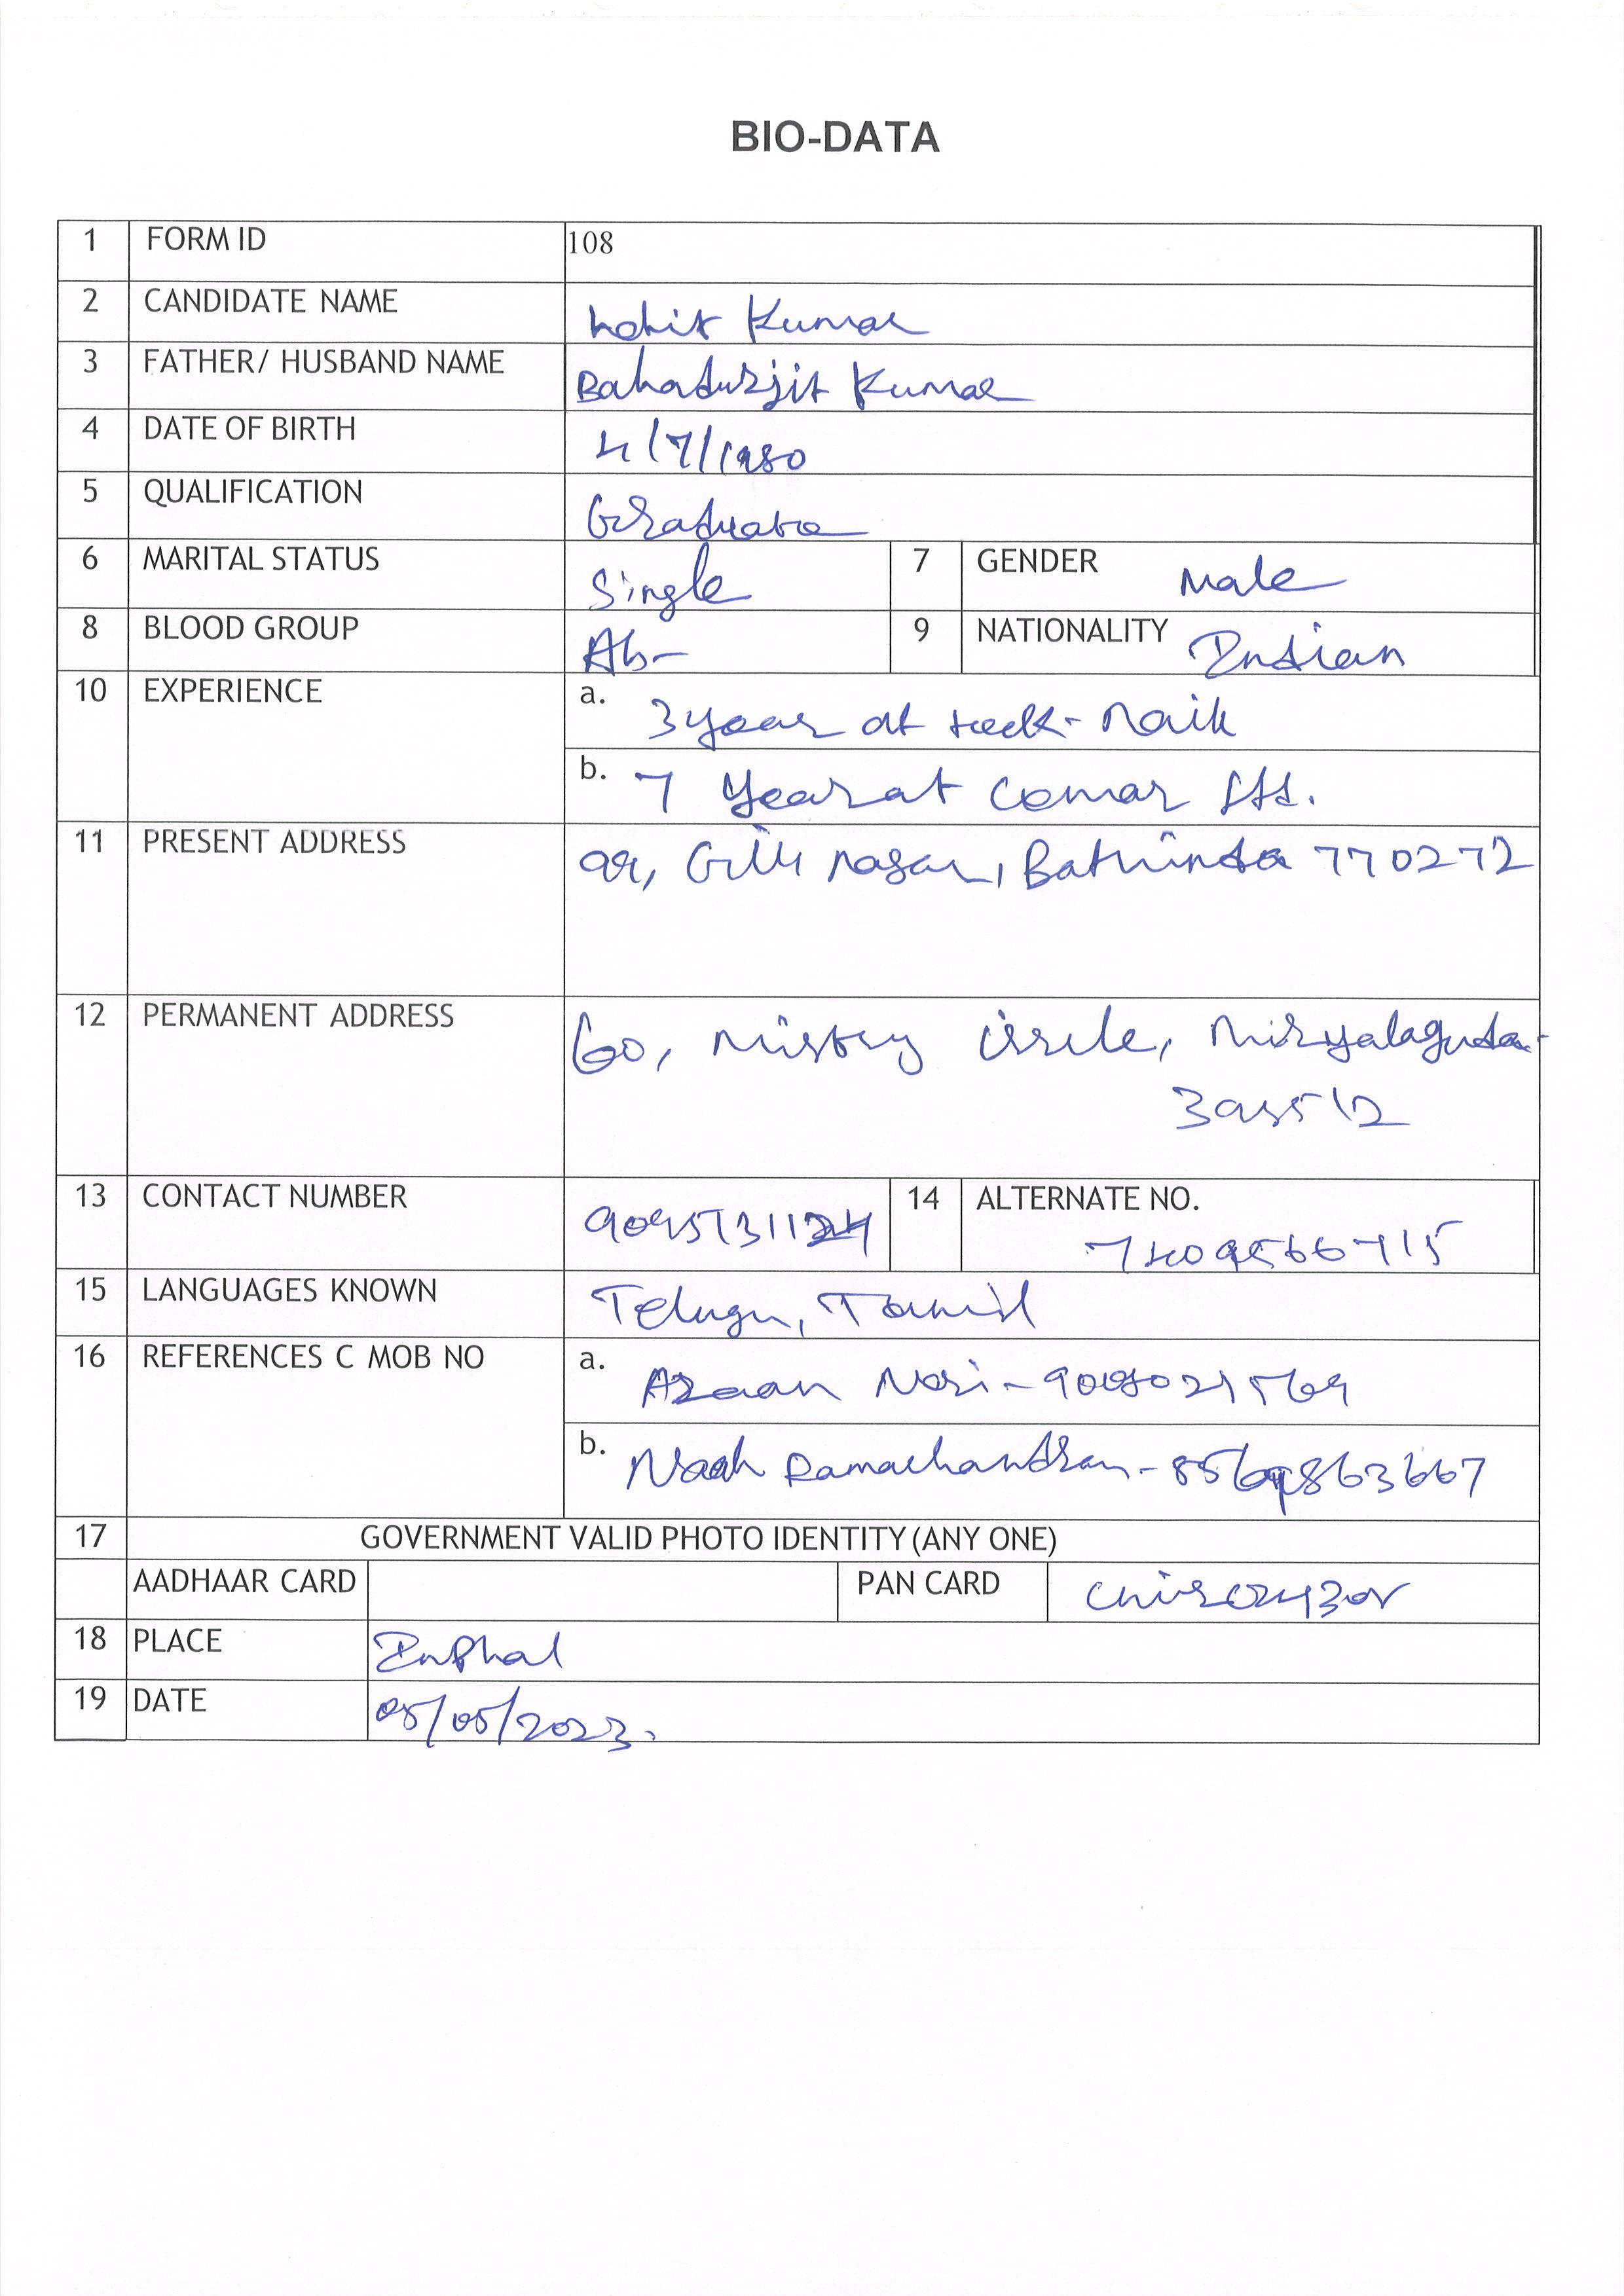 BIO-DATA
1 FORM ID 108
2 CANDIDATE NAME Lohit Kumar
3 FATHER/ HUSBAND NAME Bahadurjit Kumar
4 DATE OF BIRTH 4/7/1980
5 QUALIFICATION Graduate
6 MARITAL STATUS Single 7 GENDER Male
8 BLOOD GROUP Ab- 9 NATIONALITY Indian
10 EXPERIENCE a. 3 year at - Naik
b. 7 Year at Comar Ltd.
11 PRESENT ADDRESS 99, Gill nagar, Bathinda 770272
12 PERMANENT ADDRESS 60, Mistry circle, Miryalaguda-
13 CONTACT NUMBER 14 ALTERNATE NO.
15 LANGUAGES KNOWN Telugu, Tamil
16 REFERENCES C MOB NO a. Azaan Nori-
b. Naah Ramachandran-
17 GOVERNMENT VALID PHOTO IDENTITY (ANY ONE)
AADHAAR CARD PAN CARD
18 PLACE Imphal
19 DATE 05/05/2023.